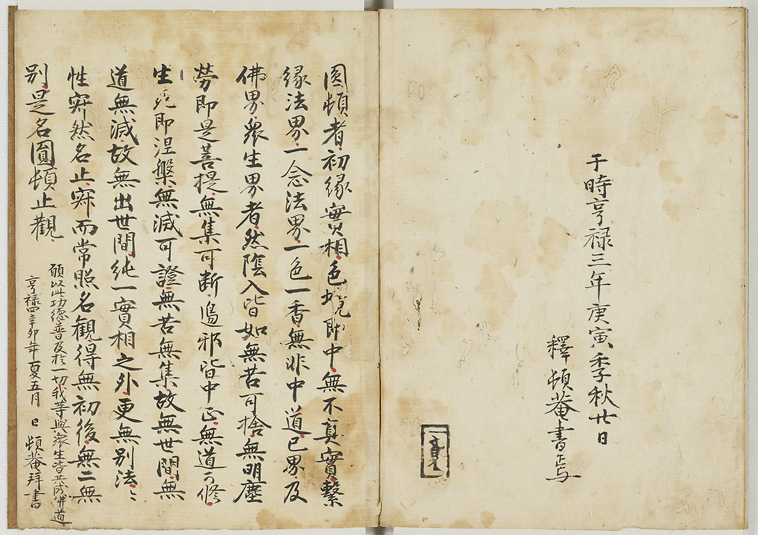 于時亨禄三年庚寅季秋廿日
釋頓菴書焉
圓頓者初縁實相色境即中無不真實繫
縁法界一念法界一色一香無非中道己界及
佛界衆生界者然陰入皆如無苦可捨無明塵
勞即是菩提無集可断邊邪皆中正無道可修
生死即涅槃無滅可證無苦無集故無世間無
道無滅故無出世間純一實相之外更無別法〻
性寂然名止寂而常照名觀得無初後無二無
別是名圓頓止觀
願以此功徳普及於一切我等與衆生皆共成佛道
亨禄四辛卯年夏五月 日 頓菴拜書